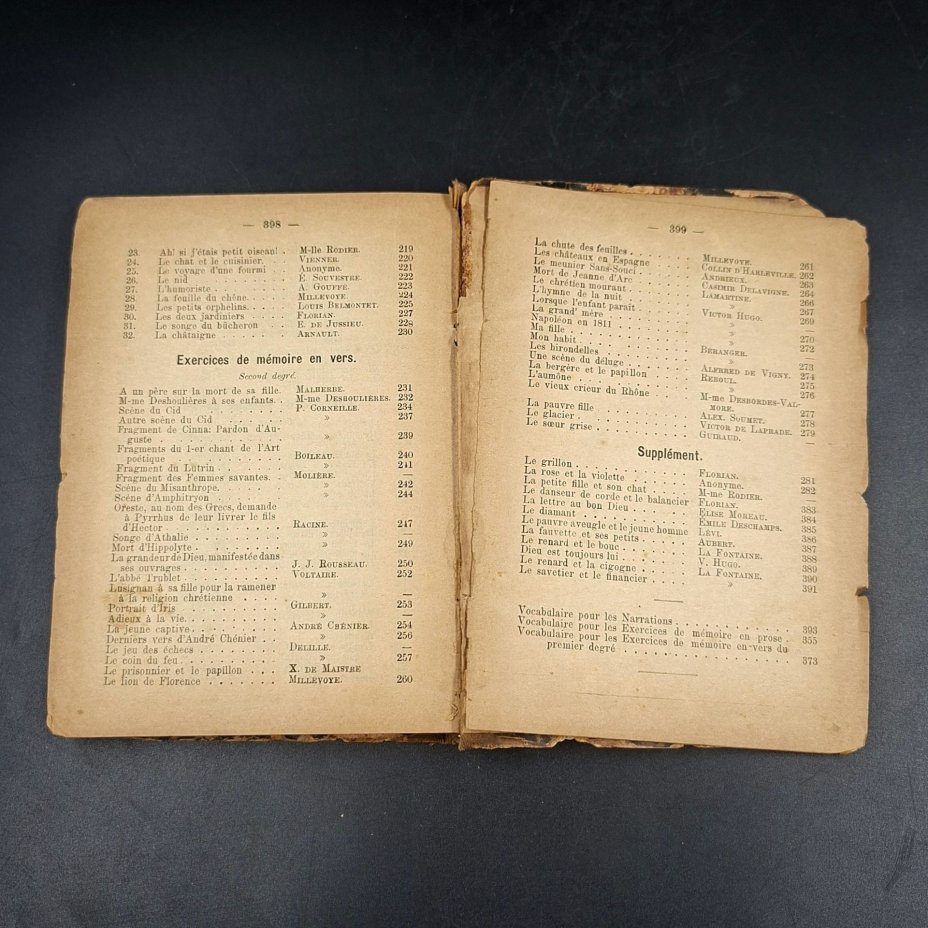 — 398 —
23. Ah! si j'étais petit oiseau! . M-lle Rodier. 219
24. Le chat et le cuisinier. . . Vienner. 220
25. Le voyage d'une fourmi . . Anonyme. 221
26. Le nid . . . . . . . . E. Souvestre. 222
27. L'humoriste . . . . . . . A. Gouffé. 223
28. La feuille du chêne. . . . . Millevoye. 224
29. Les petits orphelins. . . . . Louis Belmontet. 225
30. Les deux jardiniers . . . . Florian. 227
31. Le songe du bûcheron . . . E. de Jussieu. 228
32. La châtaigne . . . . . . . Arnault. 230
Exercices de mémoire en vers.
Second degré.
A un père sur la mort de sa fille. Malherbe. 231
M-me Deshoulières à ses enfants. . M-me Deshoulières. 232
Scène du Cid . . . . . . . . P. Corneille. 234
Autre scène du Cid . . . . . . » 237
Fragment de Cinna: Pardon d'Au-
guste . . . . . . . . . . » 239
Fragments du 1-er chant de l'Art
poétique . . . . . . . . . Boileau. 240
Fragment du Lutrin . . . . . . » 241
Fragment des Femmes savantes. . Molière. —
Scène du Misanthrope. . . . . . » 242
Scène d'Amphitryon . . . . . . » 244
Oreste, au nom des Grecs, demande
à Pyrrhus de leur livrer le fils
d'Hector . . . . . . . . . Racine. 247
Songe d'Athalie . . . . . . . » —
Mort d'Hippolyte . . . . . . . » 249
La grandeur de Dieu, manifestée dans
ses ouvrages . . . . . . . . J. J. Rousseau. 250
L'abbé Trublet . . . . . . . . Voltaire. 252
Lusignan à sa fille pour la ramener
à la religion chrétienne . . . . » —
Portrait d'Iris . . . . . . . . Gilbert. 253
Adieux à la vie. . . . . . . . » —
La jeune captive . . . . . . . André Chénier. 254
Derniers vers d'André Chénier . . » 256
Le jeu des échecs . . . . . . . Delille. —
Le coin du feu . . . . . . . . » 257
Le prisonnier et le papillon . . . X. de Maistre
Le lion de Florence . . . . . . Millevoye. 260
— 399 —
La chute des feuilles . . . . . . Millevoye. 261
Les châteaux en Espagne . . . . Collin d'Harleville. 262
Le meunier Sans-Souci . . . . . Andrieux. 263
Mort de Jeanne d'Arc . . . . . Casimir Delavigne. 264
Le chrétien mourant . . . . . . Lamartine. 266
L'hymne de la nuit . . . . . . » 267
Lorsque l'enfant parait . . . . . Victor Hugo. 269
La grand' mère . . . . . . . . » —
Napoléon en 1811 . . . . . . . » 270
Ma fille . . . . . . . . . . » 272
Mon habit . . . . . . . . . Béranger. —
Les hirondelles . . . . . . . . » 273
Une scène du déluge . . . . . . Alfred de Vigny. 274
La bergère et le papillon . . . . Reboul. 275
L'aumône . . . . . . . . . . » 276
Le vieux crieur du Rhône . . . . M-me Desbordes-Val-
more. 277
La pauvre fille . . . . . . . . Alex. Soumet. 278
Le glacier . . . . . . . . . . Victor de Laprade. 279
Le sœur grise . . . . . . . . Guiraud. —
Supplément.
Le grillon . . . . . . . . . . Florian. 281
La rose et la violette . . . . . . Anonyme. 282
La petite fille et son chat . . . . M-me Rodier. —
Le danseur de corde et le balancier Florian. 383
La lettre au bon Dieu . . . . . . Elise Moreau. 384
Le diamant . . . . . . . . . Émile Deschamps. 385
Le pauvre aveugle et le jeune homme Lévi. 386
La fauvette et ses petits . . . . . Aubert. 387
Le renard et le bouc . . . . . . La Fontaine. 388
Dieu est toujours lui . . . . . . V. Hugo. 389
Le renard et la cigogne . . . . . La Fontaine. 390
Le savetier et le financier . . . . » 391
Vocabulaire pour les Narrations . . . . . . . . 393
Vocabulaire pour les Exercices de mémoire en prose . 355
Vocabulaire pour les Exercices de mémoire en vers du
premier degré . . . . . . . . . . . . . 373